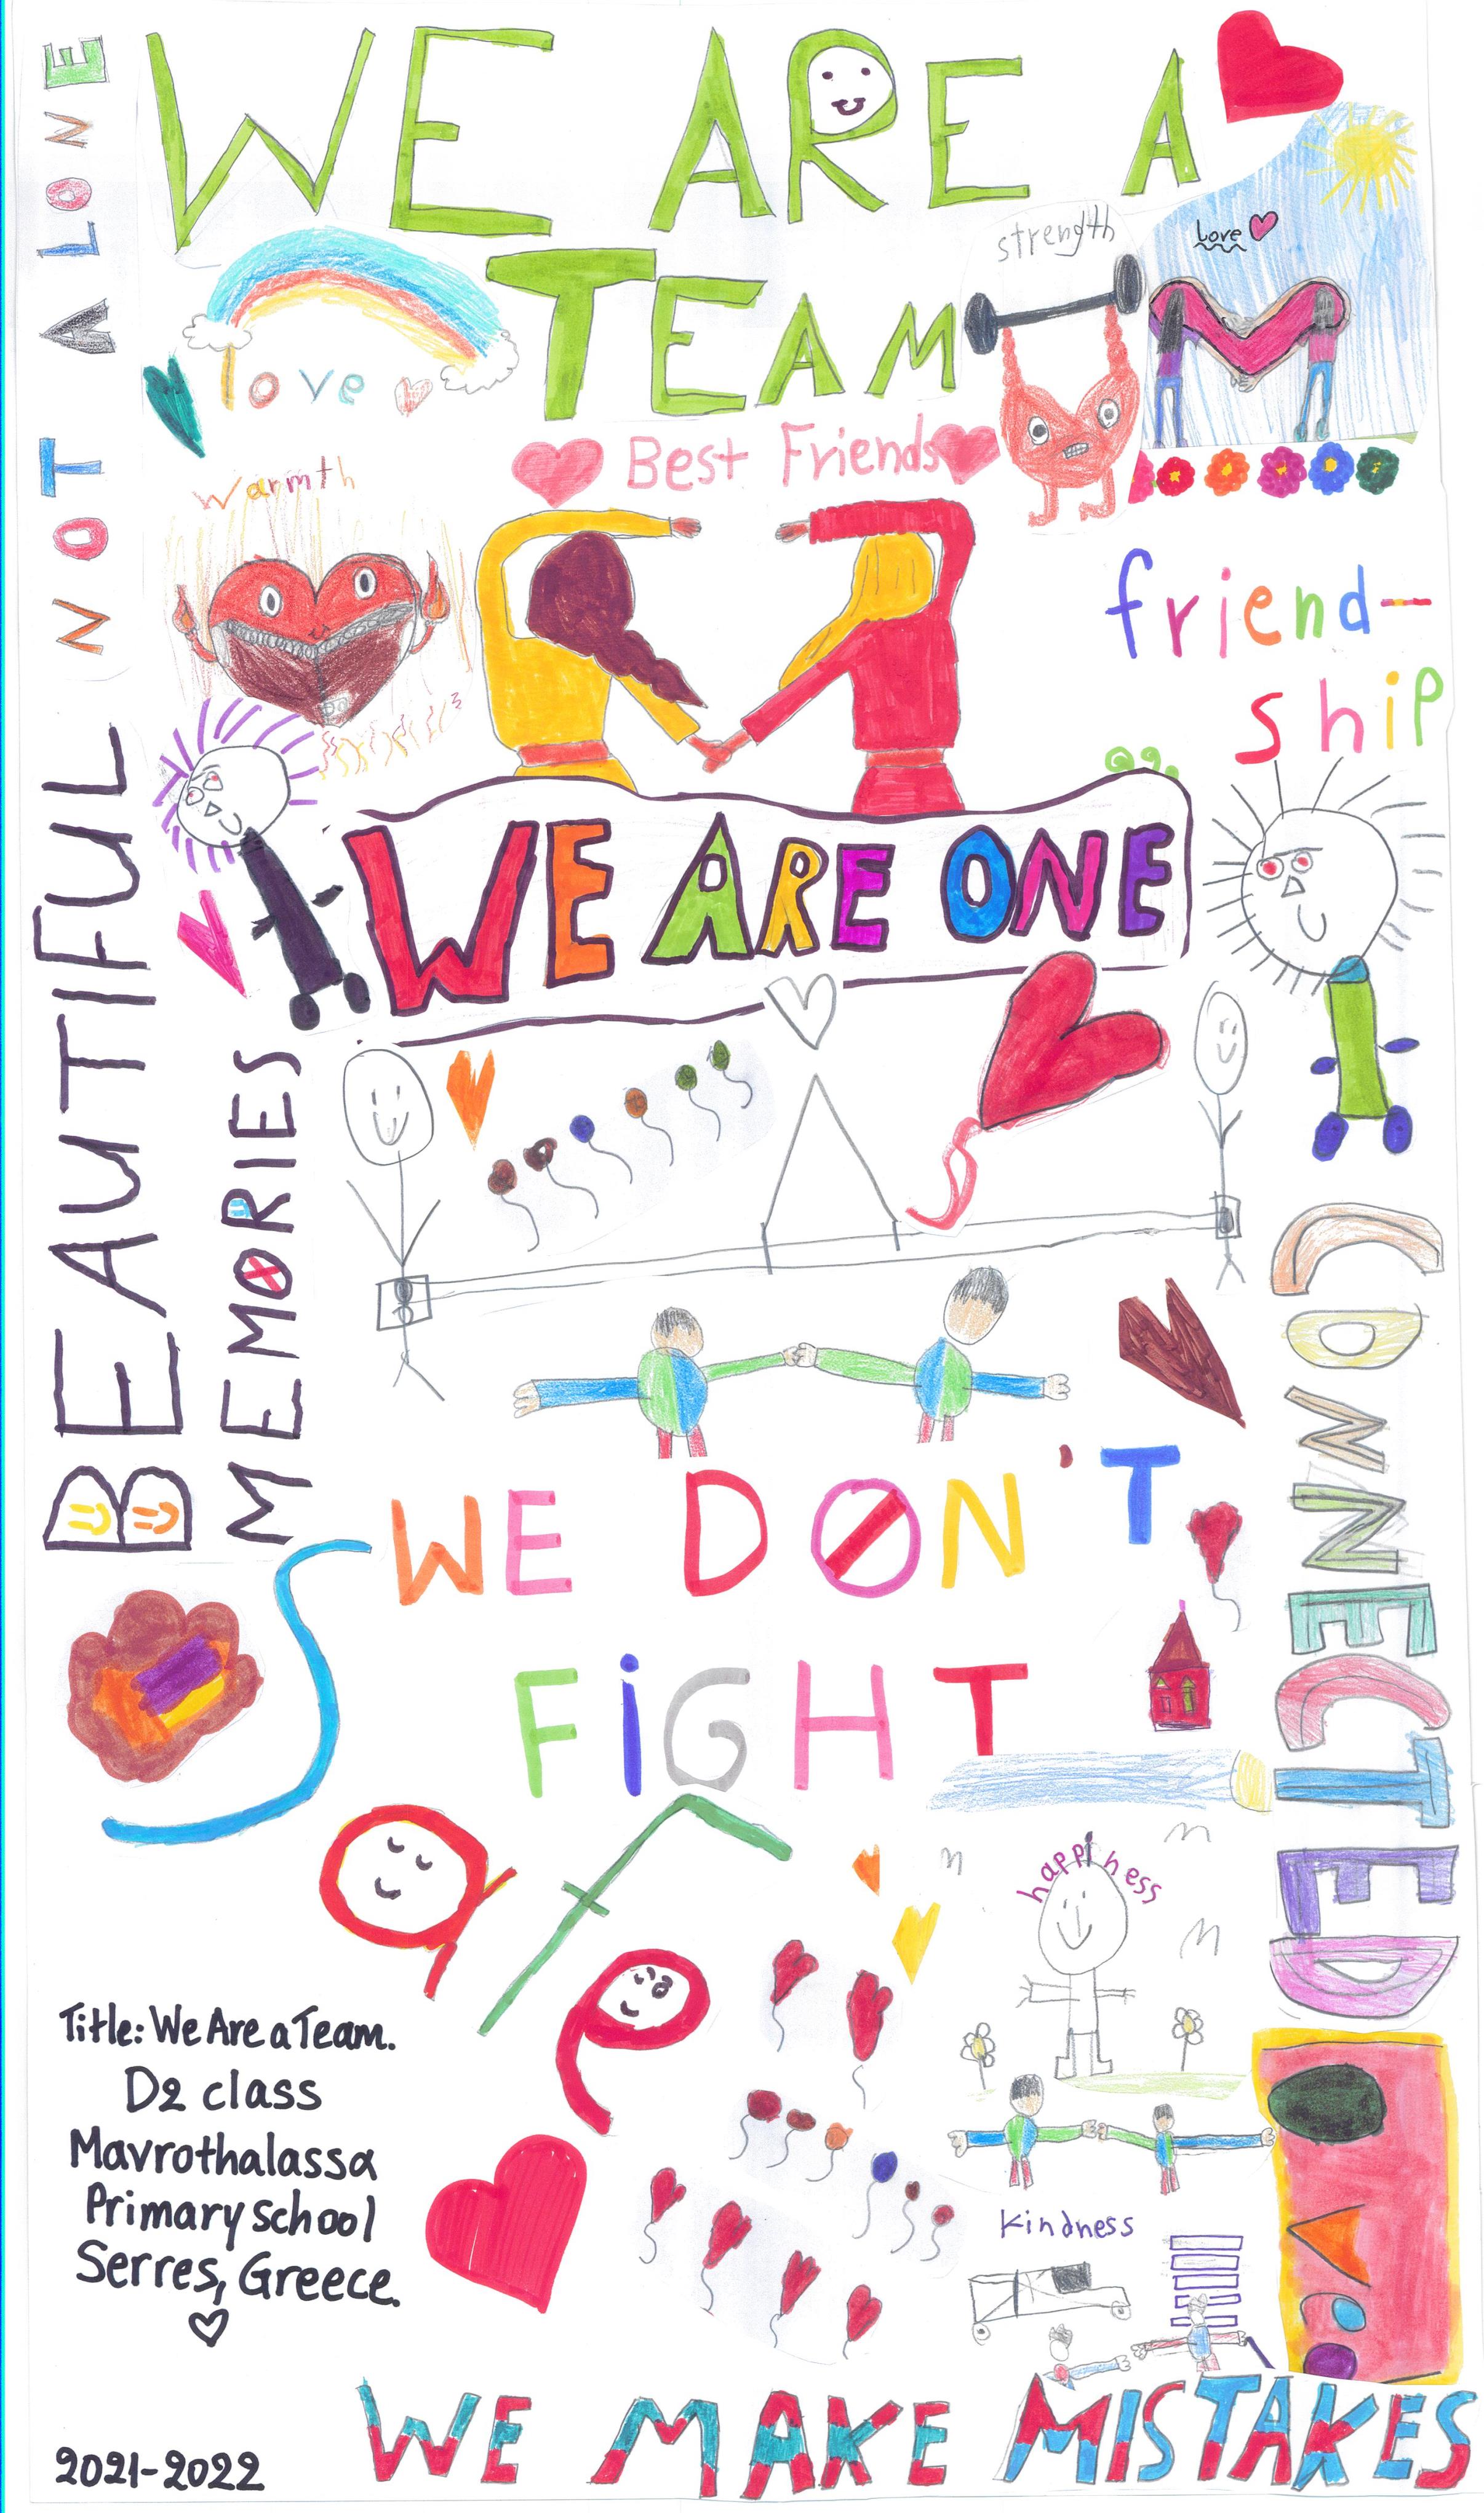 WE ARE A
TEAM
NOT ALONE
love
strength
Love
Best Friends
Warmth
friend-
ship
WE ARE ONE
BEAUTIFUL
MEMORIES
CONNECTED
WE DON'T
FiGHT
Safe
happiness
Kindness
Title: We Are a Team.
D2 class
Mavrothalassa
Primary school
Serres, Greece.
2021-2022
WE MAKE MISTAKES